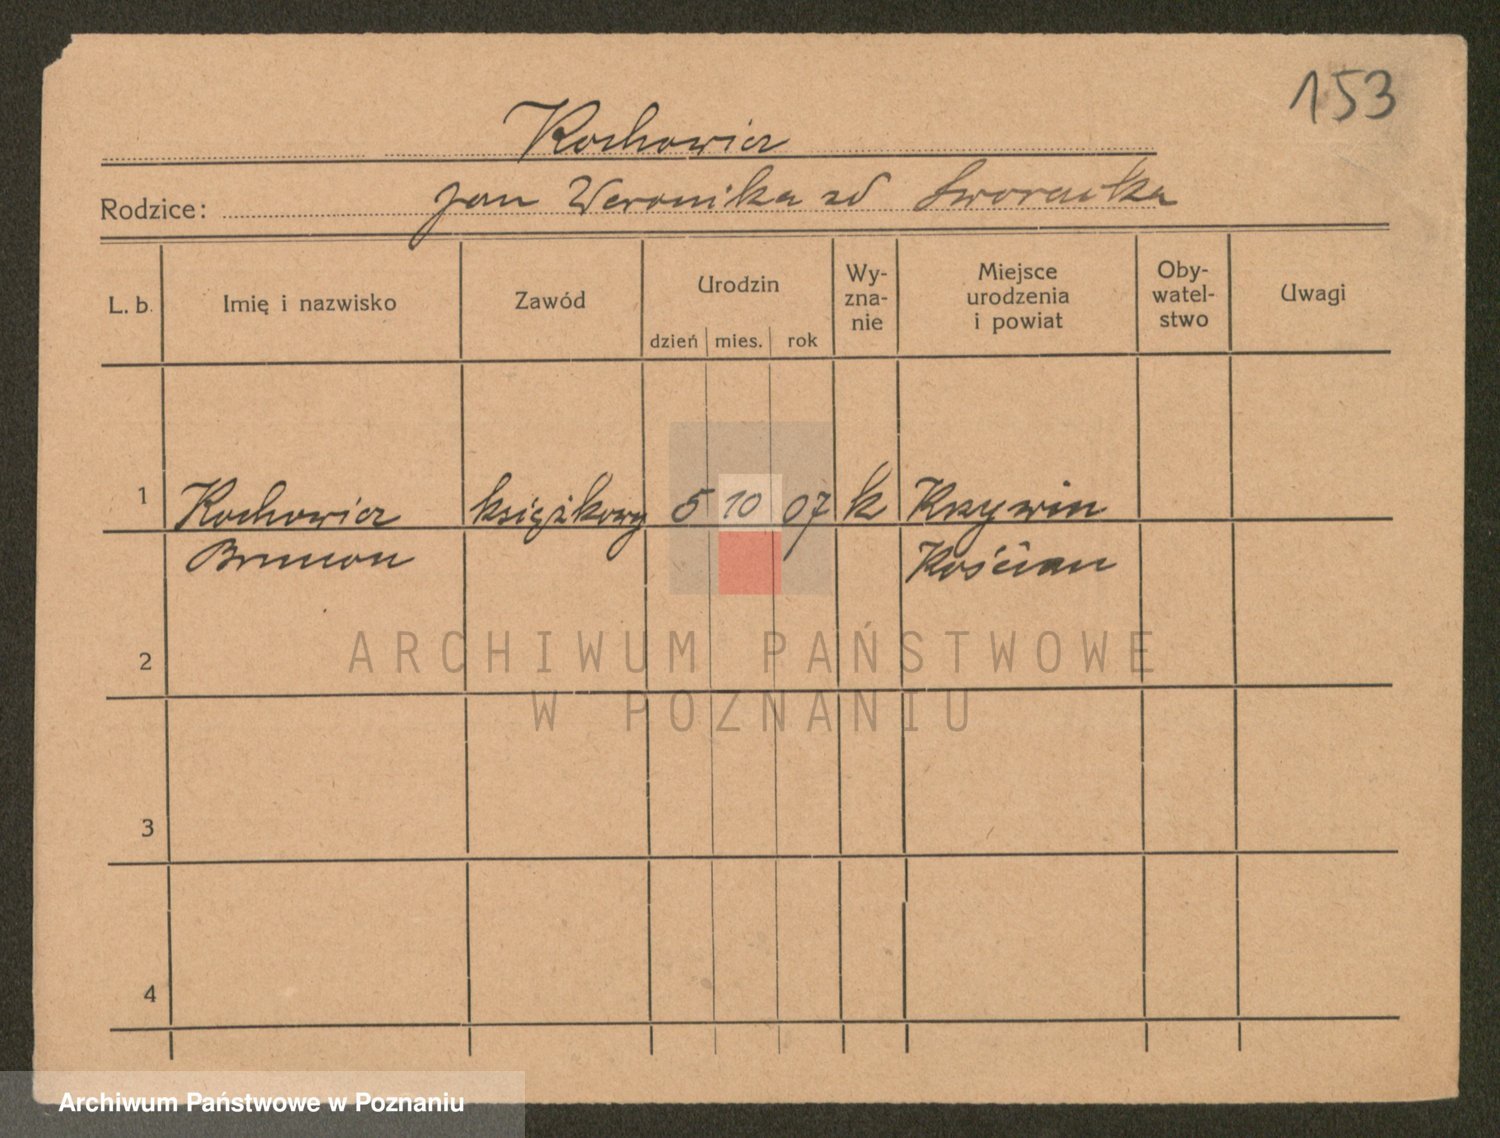 153
Kochowicz
Rodzice: Jan Weronika zd
L. b. Imię i nazwisko Zawód Urodzin dzień mies. rok Wy-zna-nie Miejsce urodzenia i powiat Oby-watel-stwo Uwagi
1 Kochowicz książkowy 5 10 07 k Krzywin
Brunon Kościan
2
ARCHIWUM PAŃSTWOWE
W POZNANIU
3
4
Archiwum Państwowe w Poznaniu